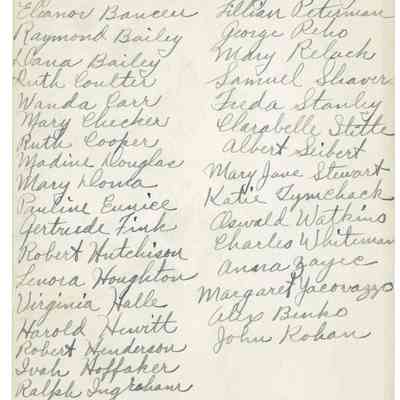 Eleanor Bancer
Raymond Bailey
Dana Bailey
Ruth Coulter
Wanda Carr
Mary Checker
Ruth Cooper
Madine Douglas
Mary Doma
Pauline Eunice
Gertrude Fink
Robert Hutchison
Lenora Houghton
Virginia Halle
Harold Hewitt
Robert Henderson
Ivah Hoffaker
Ralph Ingraham
Lillian Peterman
George Reho
Mary Relach
Samuel Shaver
Freda Stanley
Clarabelle Stitte
Albert Seibert
Mary Jane Stewart
Katie Tymchack
Oswald Watkins
Charles Whiteman
Anna Zayec
Margaret Yacovazzo
Alex Binko
John Kohan